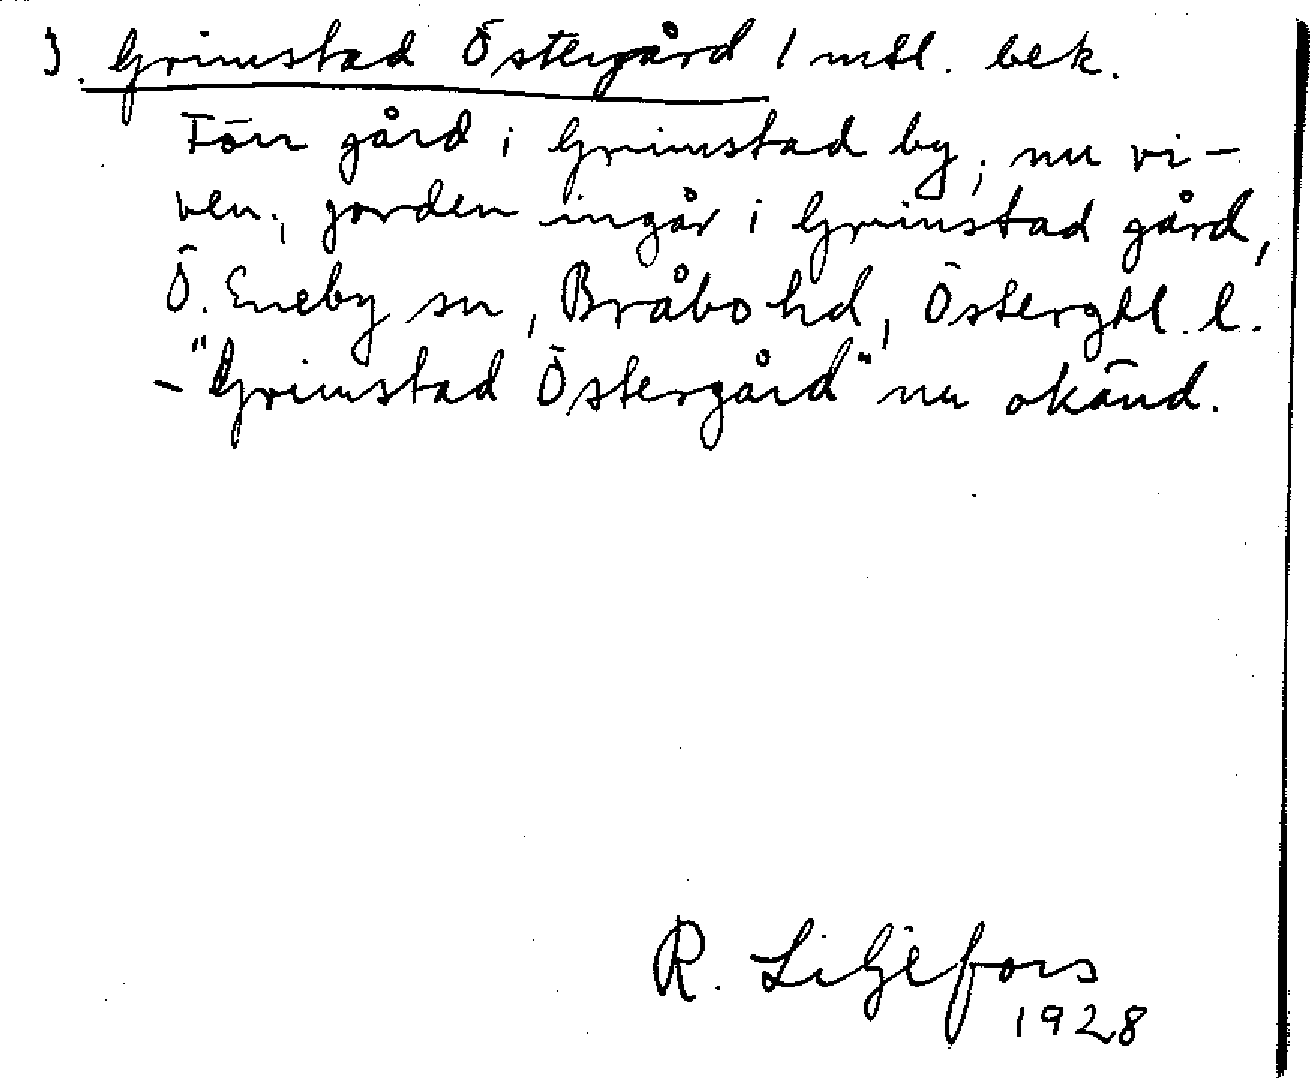 3. Grimstad Östergård 1 mtl. bek.
Förr gård i Grimstad by; nu ri-
ven; jorden ingår i Grimstad gård,
Ö. Eneby sn, Bråbo hd, Östergtl. l.
- "Grimstad Östergård" nu okänd.
R. Liljefors
1928